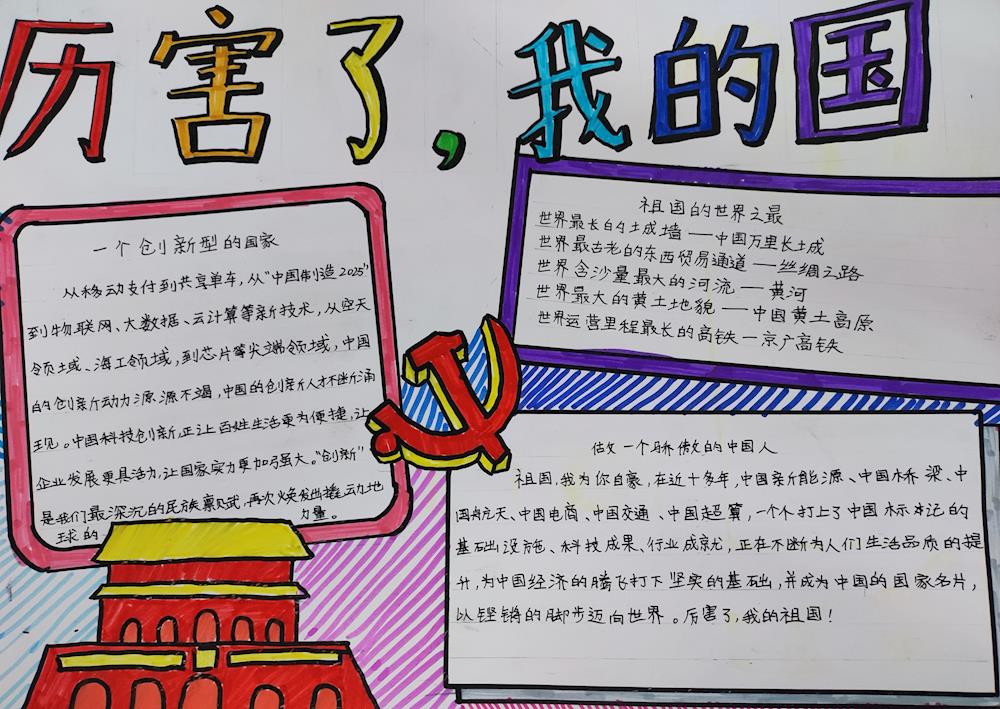 厉害了，我的国
一个创新型的国家
从移动支付到共享单车，从“中国制造2025”
到物联网、大数据、云计算等新技术，从空天
领域、海工领域，到芯片等尖端领域，中国
的创新动力源源不竭，中国的创新人才不断涌
现。中国科技创新，正让百姓生活更为便捷，让
企业发展更具活力，让国家实力更加强大。“创新”
是我们最深沉的民族禀赋，再次焕发出撬动地
球的 力量。
祖国的世界之最
世界最长的土成墙——中国万里长成
世界最古老的东西贸易通道——丝绸之路
世界含沙量最大的河流——黄河
世界最大的黄土地貌——中国黄土高原
世界运营里程最长的高铁—京广高铁
做一个骄傲的中国人
祖国，我为你自豪，在近十多年，中国新能源、中国桥梁、中
国航天、中国电商、中国交通、中国超算，一个个打上了中国标记的
基础设施、科技成果、行业成就，正在不断为人们生活品质的提
升，为中国经济的腾飞打下坚实的基础，并成为中国的国家名片，
以铿锵的脚步迈向世界。厉害了，我的祖国！